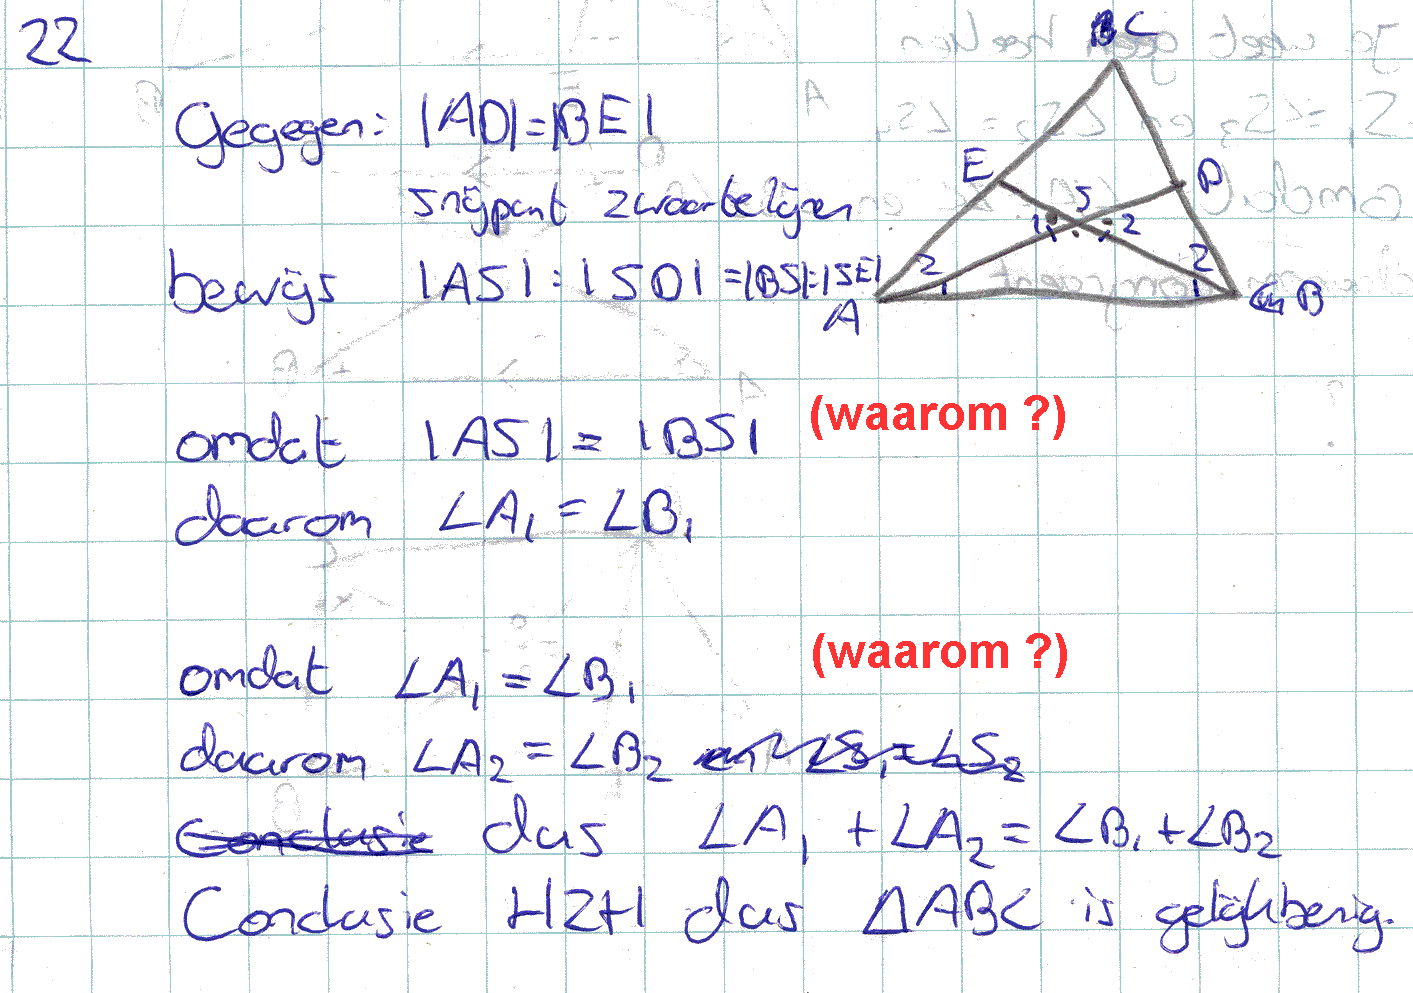 22
Gegegen: |AD|=|BE|
snijpunt zwaartelijnen
bewijs |AS| : |SD| = |BS|:|SE|
C
E
D
S
1
2
2
2
1
1
A
B
omdat |AS| = |BS| (waarom ?)
daarom ∠A₁ = ∠B₁
omdat ∠A₁ = ∠B₁ (waarom ?)
daarom ∠A₂ = ∠B₂ en ∠S₁ = ∠S₂
Conclusie dus ∠A₁ + ∠A₂ = ∠B₁ + ∠B₂
Conclusie HZH dus ΔABC is gelijkbenig.